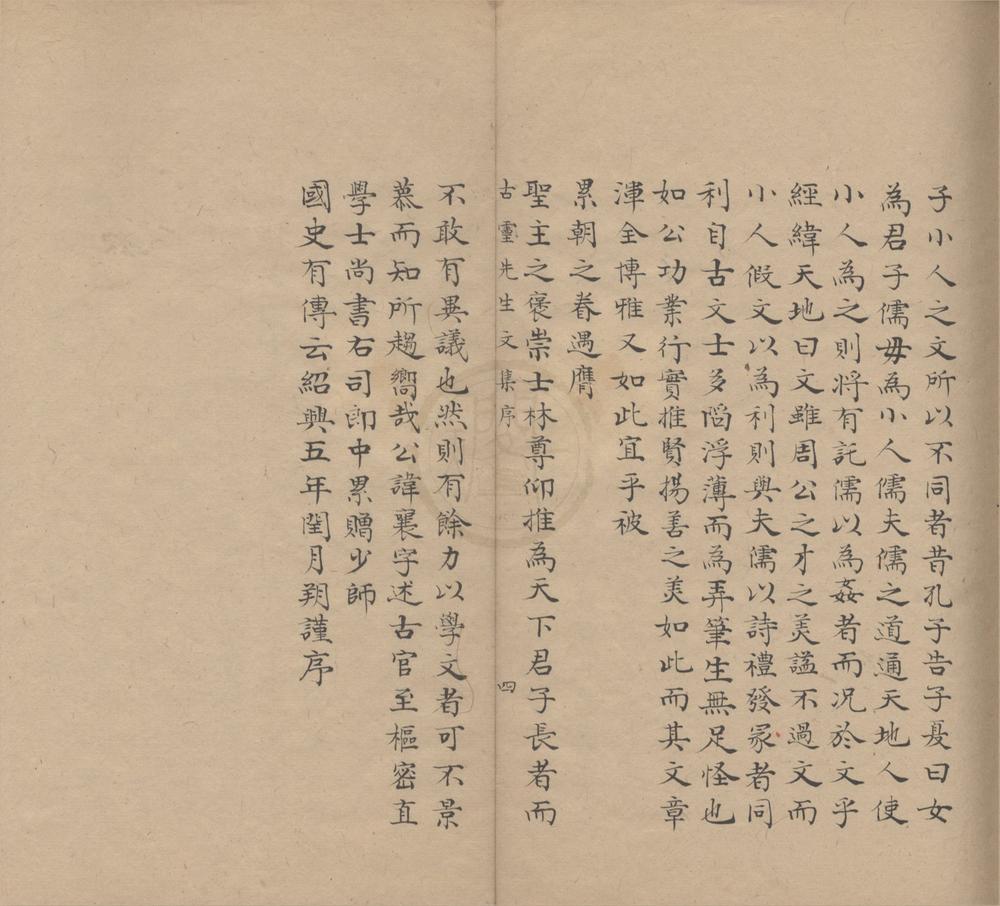 子小人之文所以不同者昔孔子告子夏曰女
為君子儒毋為小人儒夫儒之道通天地人使
小人為之則将有託儒以為姦者而况於文乎
經緯天地曰文雖周公之才之美謚不過文而
小人假文以為利則與夫儒以詩禮發冢者同
利自古文士多陷浮薄而為弄筆生無足怪也
如公功業行實推賢揚善之美如此而其文章
渾全博雅又如此宜乎被
累朝之眷遇膺
聖主之褒崇士林尊仰推為天下君子長者而
古靈先生文集序 四
不敢有異議也然則有餘力以學文者可不景
慕而知所趨嚮哉公諱襄字述古官至樞密直
學士尚書右司郎中累贈少師
國史有傳云紹興五年閏月朔謹序